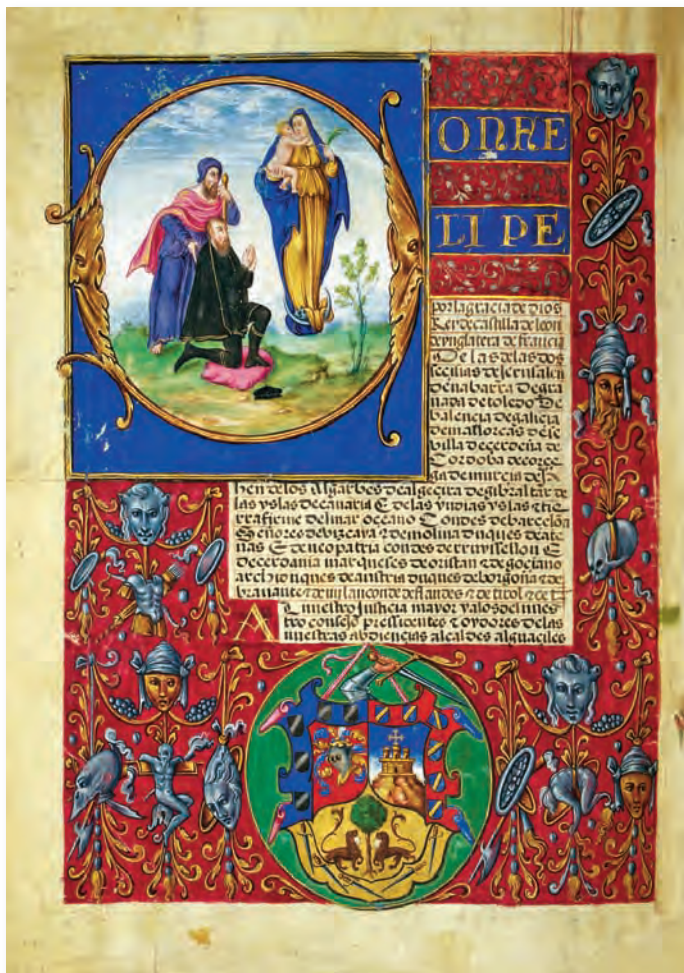 ONFE
LIPE
por la gracia de dios
Rey de castilla de leon
de ynglatera de francia
De las de las dos
secilias de Jerusalen
de nabarra de gra
nada de toledo De
balencia de galicia
de mallorcas de se
villa de cerdeña de
Cordoba de corce
ga de murcia de Ja
hen de los Algarbes de algecira de gibraltar de
las yslas de canaria E de las yndias yslas & tie
rra firme del mar oceano Condes de barcelona
Señores de vizcaya & de molina duques de ate
nas E de neopatria condes de rruysellon E
de cerdania marqueses de oristan & de gociano
archiduques de austria duques de borgoña & de
bravante & de mylan conde de flandes & de tirol & c
A L nuestro Justicia mayor y a los del nues
tro consejo pressidentes & oydores de las
nuestras abdiencias alcaldes alguaciles